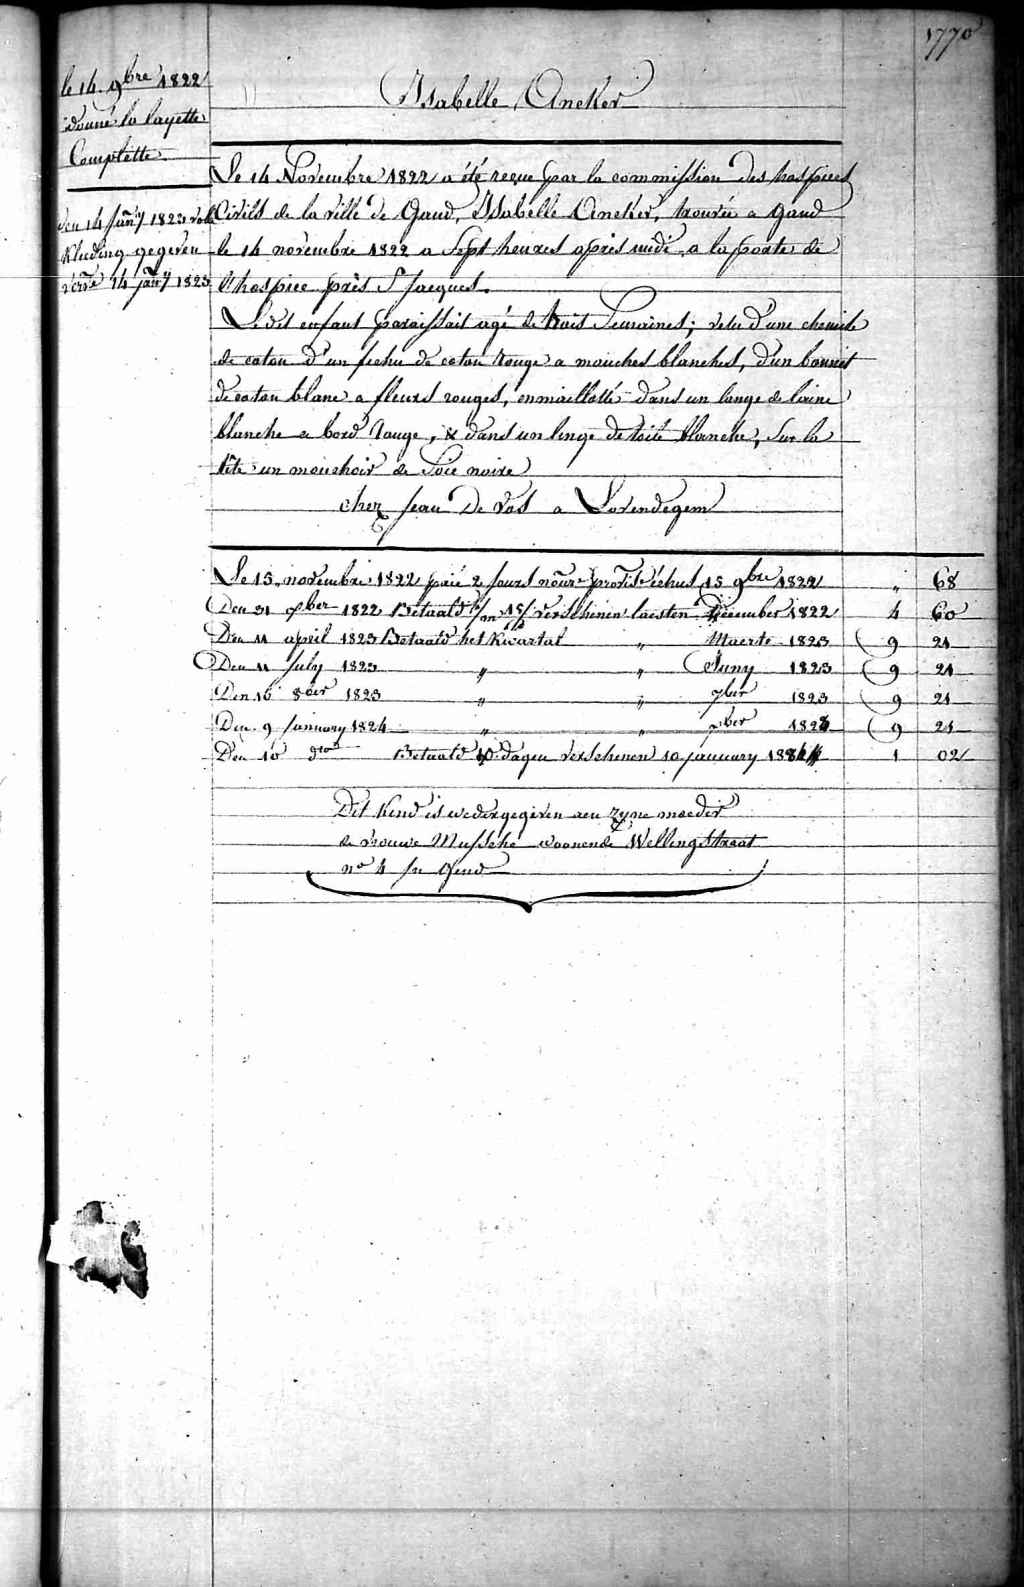 1770
le 14 9bre 1822
donné la layette
Complette.
den 14 Janry 1823 volle
kleding gegeven
verve 14 janry 1823
Isabelle Aneker
Le 14 Novembre 1822 a été reçue par la commission des hospices
Civils de la ville de Gand, Isabelle Aneker, trouvée a gand
le 14 novembre 1822 a sept heures après midi a la porte de
l'hospice près St Jacques.
Ledit enfant paraissait agé de trois Semaines; vetu d'une chemise
de coton d'un fichu de coton rouge a mouches blanches, d'un bonnet
de coton blanc a fleurs rouges, emmaillotté dans un lange de laine
blanche a bord rouge, & dans un linge de toile blanche, sur la
tête un mouchoir de Soie noire
chez Jean De Vos a Lovendegem
Le 15 novembre 1822 payé 2 jours échus 15 9bre 1822 " 68
Den 31 Xber 1822 Betaald 1 1/2 verschenen laesten December 1822 4 60
Den 11 april 1823 Betaald het Kwartal " Maerte 1823 9 21
Den 11 July 1823 " " Juny 1823 9 21
Den 16 8ber 1823 " " 7ber 1823 9 21
Den 9 January 1824 " " Xber 1823 9 21
Den 10 dito Betaald 10 dagen verschenen 10 january 1824 1 02
Dit Kind is wedergegeven aen zyne moeder
de vrouwe Mussche woonende Wellingstraat
no 4 in Gend